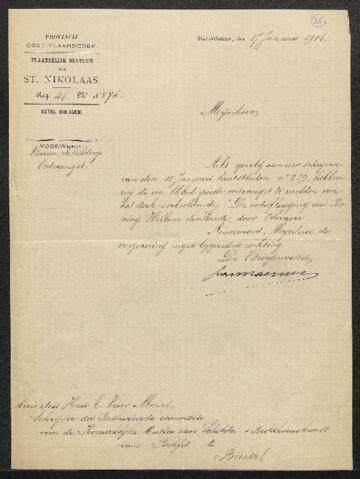 PROVINCIE
OOST-VLAANDEREN.
PLAATSELIJK BESTUUR
VAN
ST. NIKOLAAS.
Nr 5876
GETAL BIJLAGEN.
VOORWERP
Nieuwe schilderij
Ontvangst
Sint-Nikolaas, den 17 Januari 1906.
Mijnheer,
Als gevolg aan uw schrijven
van den 10 Januari laatstleden n° 239, hebben
wij de eer U de goede ontvangst te melden van
het doek verbeeldende: "De
Koning Willem den Eerste, door
Aanvaard, Mijnheer, de
verzekering mijner bijzondere achting.
De Burgemeester,
Aan den Heer E. Van
Schrijver der Besturende commissie
van de Koninklijke van Schilder- & Beeldhouwkunst
van België te
Brussel